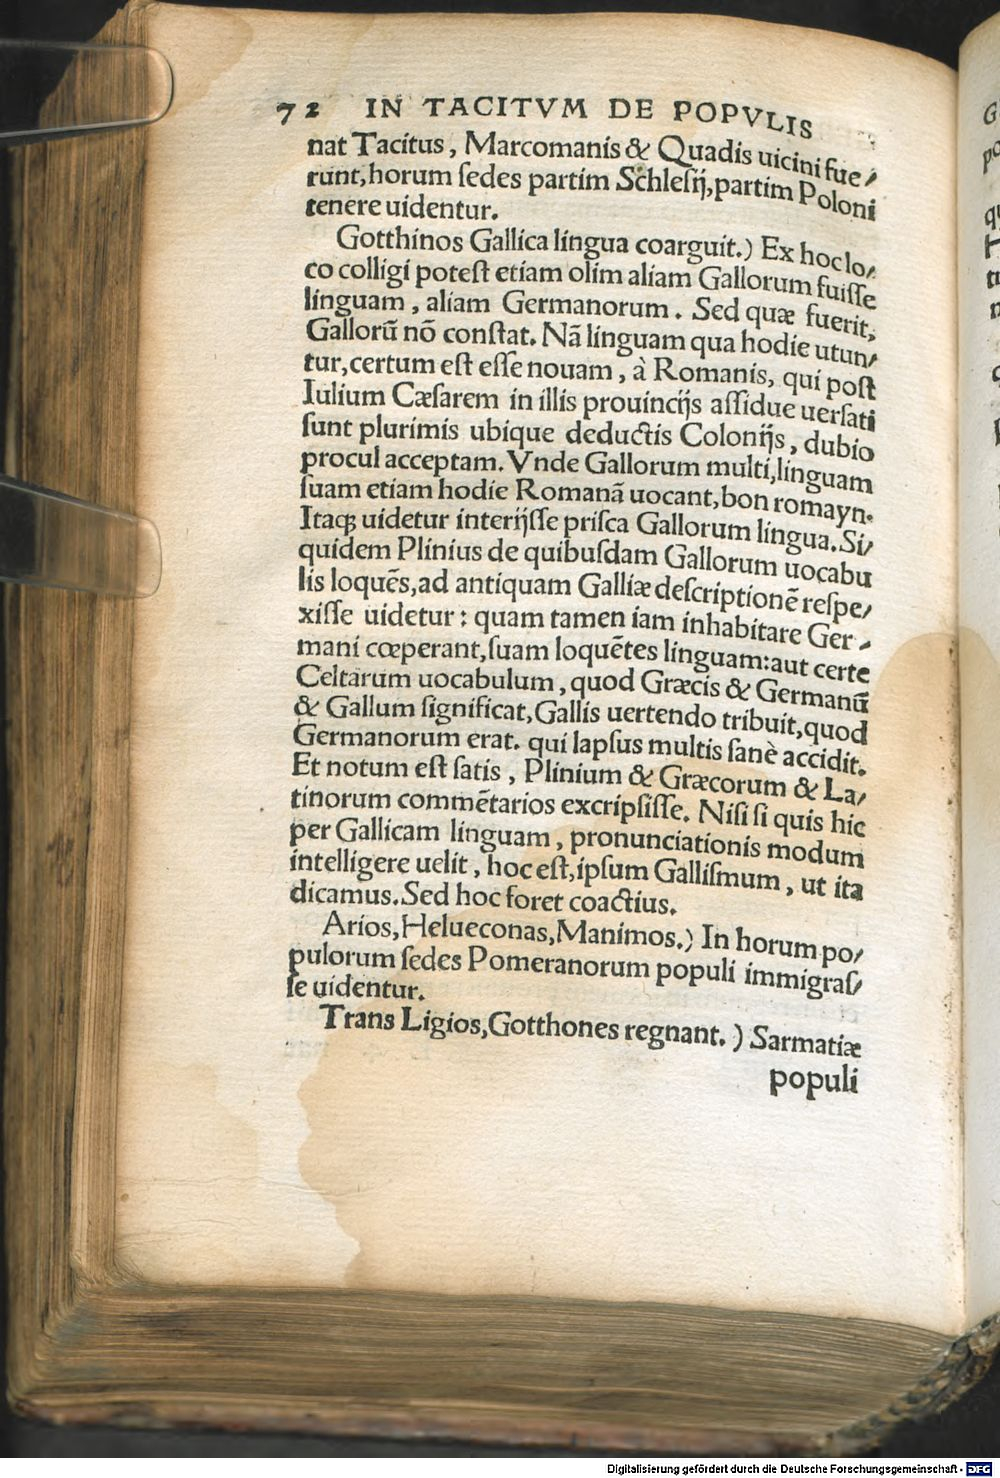 72 IN TACITVM DE POPVLIS
nat Tacitus, Marcomanis & Quadis uicini fue⸗
runt, horum ſedes partim Schleſij, partim Poloni
tenere uidentur.
Gotthinos Gallica lingua coarguit.) Ex hoc lo⸗
co colligi poteſt etiam olim aliam Gallorum fuiſſe
linguam, aliam Germanorum. Sed quæ fuerit,
Gallorũ nõ conſtat. Nã linguam qua hodie utun⸗
tur, certum eſt eſſe nouam, à Romanis, qui poſt
Iulium Cæſarem in illis prouincijs aſſidue uerſati
ſunt plurimis ubique deductis Colonijs, dubio
procul acceptam. Vnde Gallorum multi, linguam
ſuam etiam hodie Romanã uocant, bon romayn.
Itaqꝫ uidetur interijſſe priſca Gallorum lingua. Si⸗
quidem Plinius de quibuſdam Gallorum uocabu
lis loquẽs, ad antiquam Galliæ deſcriptionẽ reſpe⸗
xiſſe uidetur: quam tamen iam inhabitare Ger⸗
mani cœperant, ſuam loquẽtes linguam: aut certe
Celtarum uocabulum, quod Græcis & Germanũ
& Gallum ſignificat, Gallis uertendo tribuit, quod
Germanorum erat. qui lapſus multis ſanè accidit.
Et notum eſt ſatis, Plinium & Græcorum & La⸗
tinorum commẽtarios excripſiſſe. Niſi ſi quis hic
per Gallicam linguam, pronunciationis modum
intelligere uelit, hoc eſt, ipſum Galliſmum, ut ita
dicamus. Sed hoc foret coactius.
Arios, Helueconas, Manimos.) In horum po⸗
pulorum ſedes Pomeranorum populi immigraſ⸗
ſe uidentur.
Trans Ligios, Gotthones regnant.) Sarmatiæ
populi
Digitalisierung gefördert durch die Deutsche Forschungsgemeinschaft - DFG